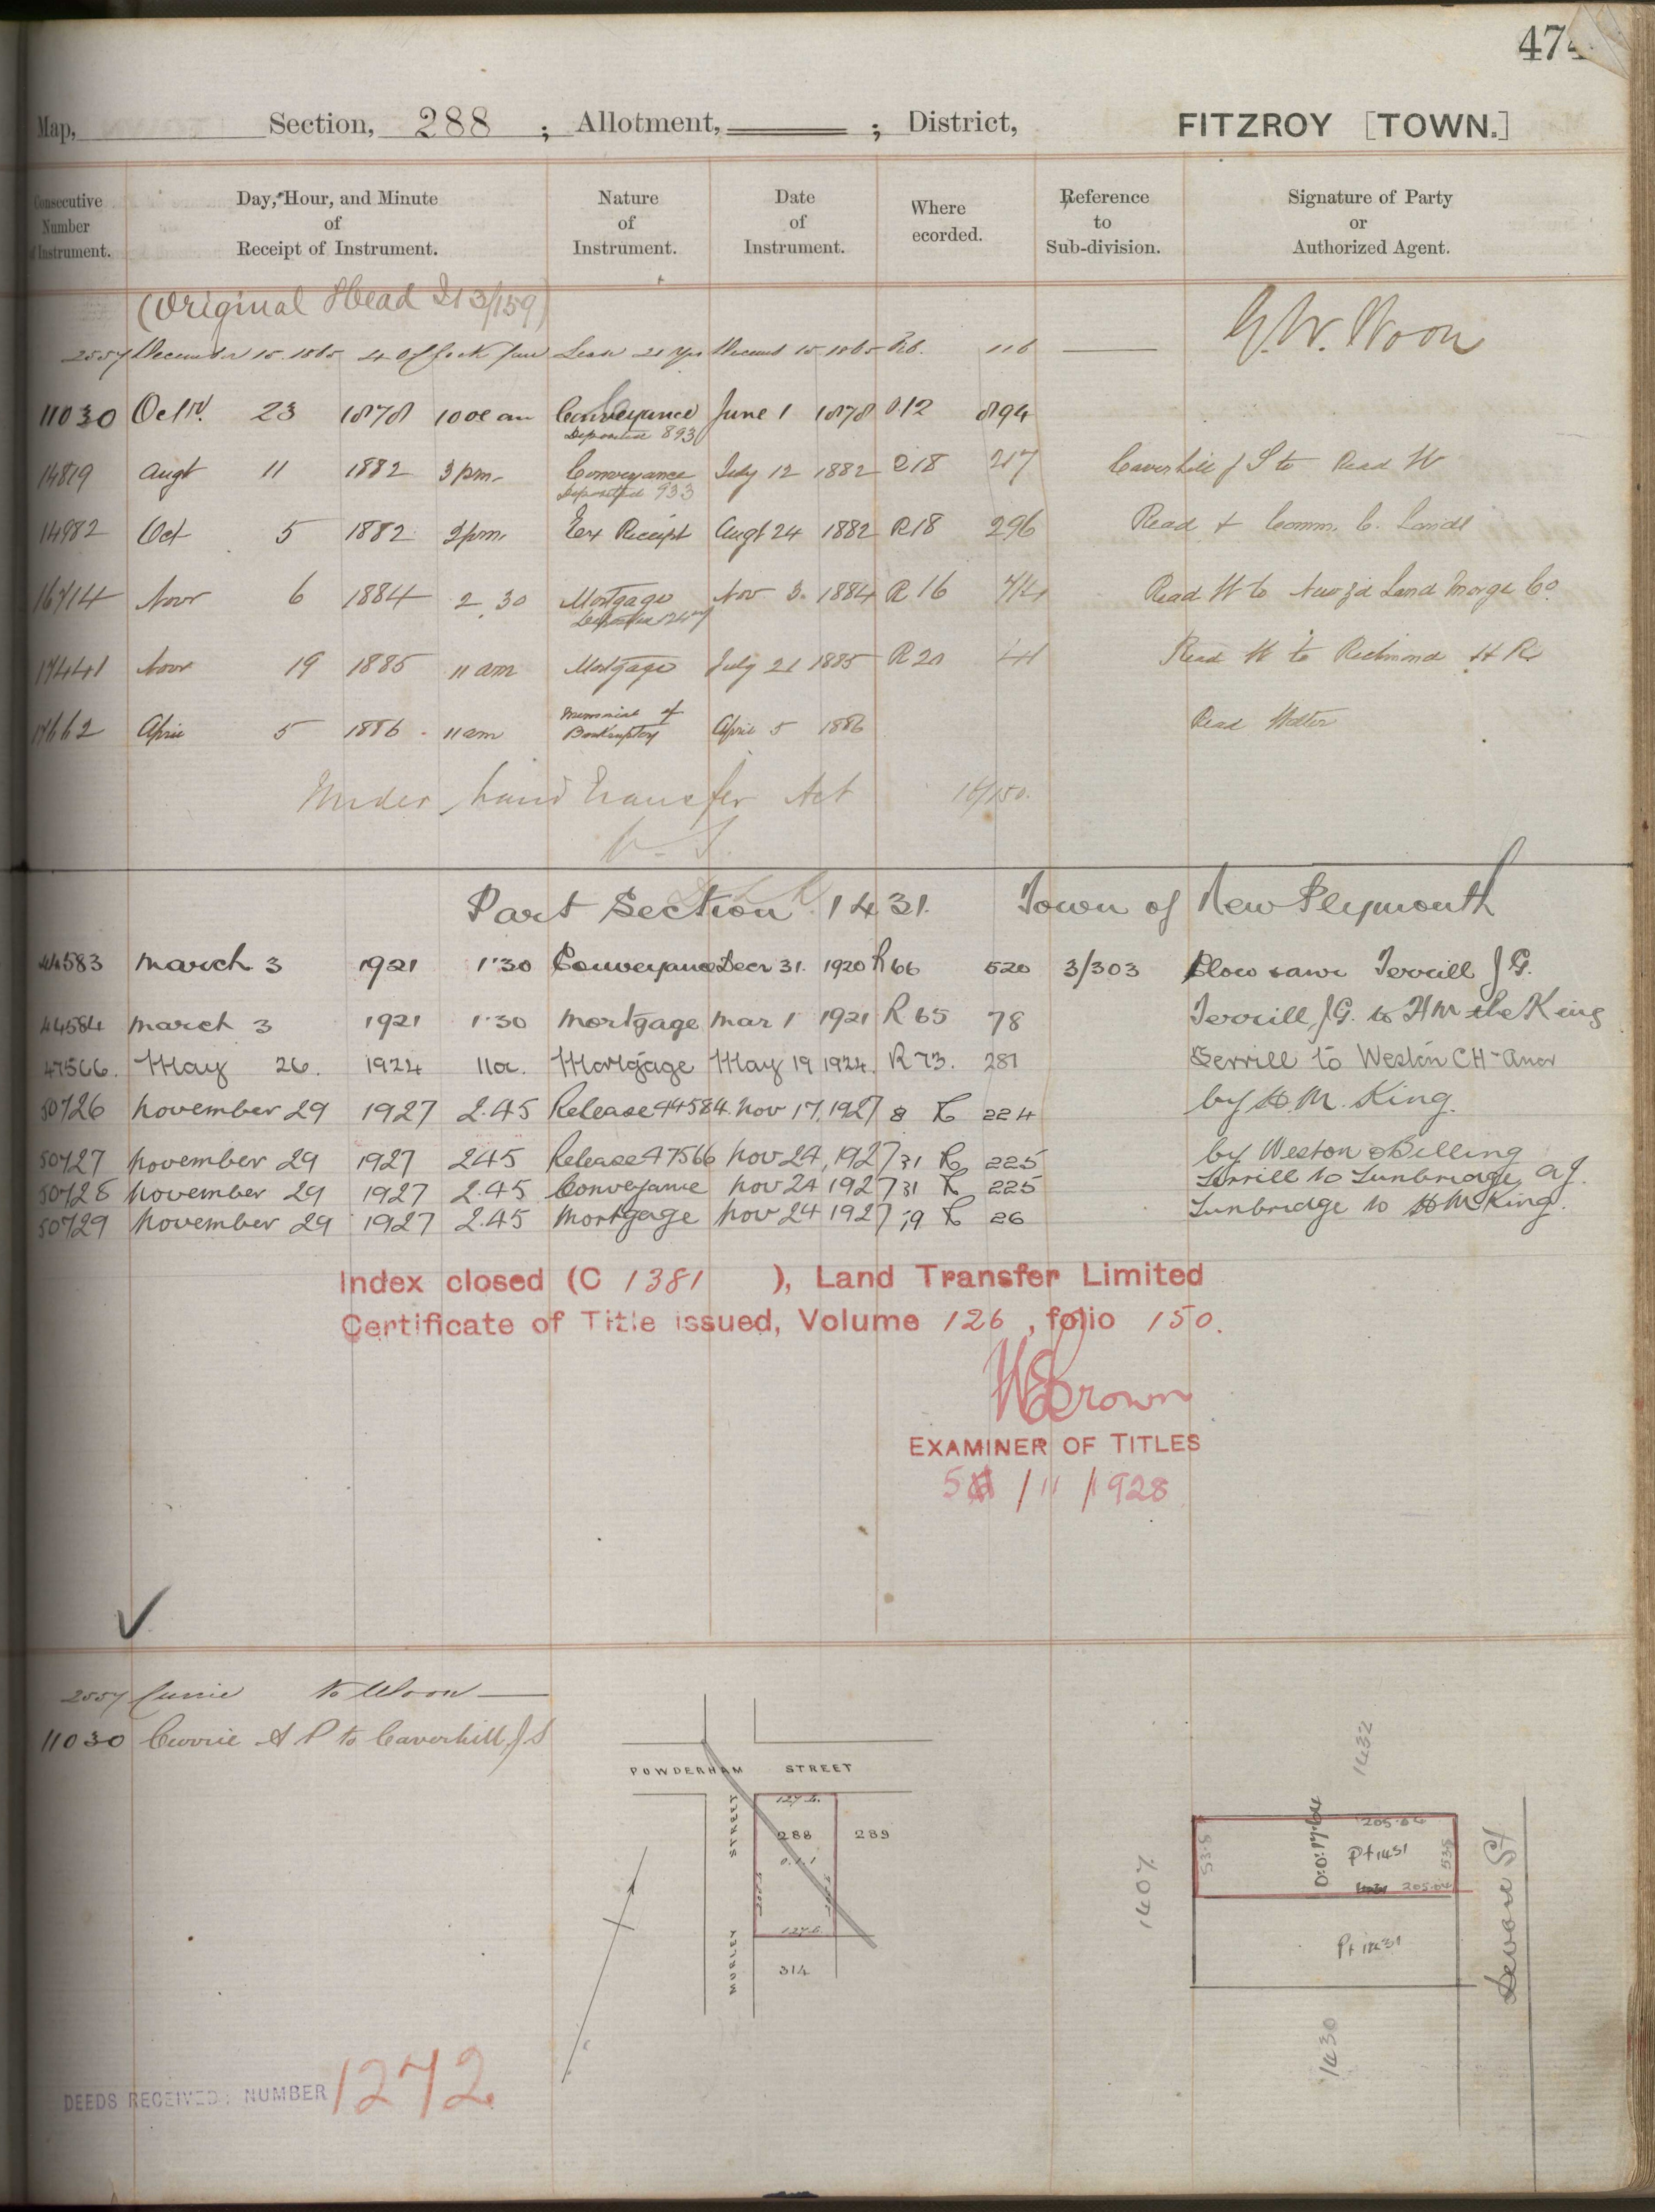 474
Map, Section, 288 ; Allotment, ; District, FITZROY [TOWN.]
Consecutive Number of Instrument. Day, Hour, and Minute of Receipt of Instrument. Nature of Instrument. Date of Instrument. Where ecorded. Reference to Sub-division. Signature of Party or Authorized Agent.
(Original Head I13/159)
2557 December 15 1865 4 O'Clock Lease 21 yrs 15 1865 116 G.W. Woon
11030 Octr. 23 1878 10 am Conveyance June 1 1878 D12 894
Deposited 893
14819 Augt 11 1882 3 pm. Conveyance July 12 1882 R18 217 Caverhill J S to Read W
Deposited 933
14982 Oct 5 1882 2 pm. Ex Receipt Augt 24 1882 R18 296 Read & Comm. C. Lands
16714 Novr 6 1884 2.30 Mortgage Nov 3. 1884 R 16 714 Read W to New Zd Land Morge Co.
17441 Novr 19 1885 11 am Mortgage July 21 1885 R 20 41 Read W to Richmond H R
17662 April 5 1886 11 am Memorial of Bankruptcy April 5 1886 Read Walter
Under Land Transfer Act 16/150.
Part Section 1431. Town of New Plymouth
44583 March 3 1921 1.30 Conveyance Decr 31. 1920 R 66 520 3/303 Terrill J G.
44584 March 3 1921 1.30 Mortgage Mar 1 1921 R 65 78 Terrill J G. to H M the King
47566. May 26. 1924 11a. Mortgage May 19 1924. R 73. 281 Terrill to Weston C H - Anor
50726 November 29 1927 2.45 Release 44584. Nov 17, 1927 8 R 224 by H. M. King.
50727 November 29 1927 2.45 Release 47566 Nov 24, 1927 31 R 225 by Weston & Billing
50728 November 29 1927 2.45 Conveyance Nov 24 1927 31 R 225 Terrill to Tunbridge, A J.
50729 November 29 1927 2.45 Mortgage Nov 24 1927 19 R 26 Tunbridge to H M King.
Index closed (C 1381 ), Land Transfer Limited
Certificate of Title issued, Volume 126 , folio 150.
Brown
EXAMINER OF TITLES
5 / 11 / 1928
2557 Currie to Woon
11030 Currie A P to Caverhill, J S
POWDERHAM STREET
MORLEY STREET
127.6.
288
0.1.1
289
127.6.
314
1432
1407
53.5
0:0:17.64
205.04
Pt 1431
53.5
205.04
Pt 1431
Devon St
1430
DEEDS RECEIVED: NUMBER 1272.